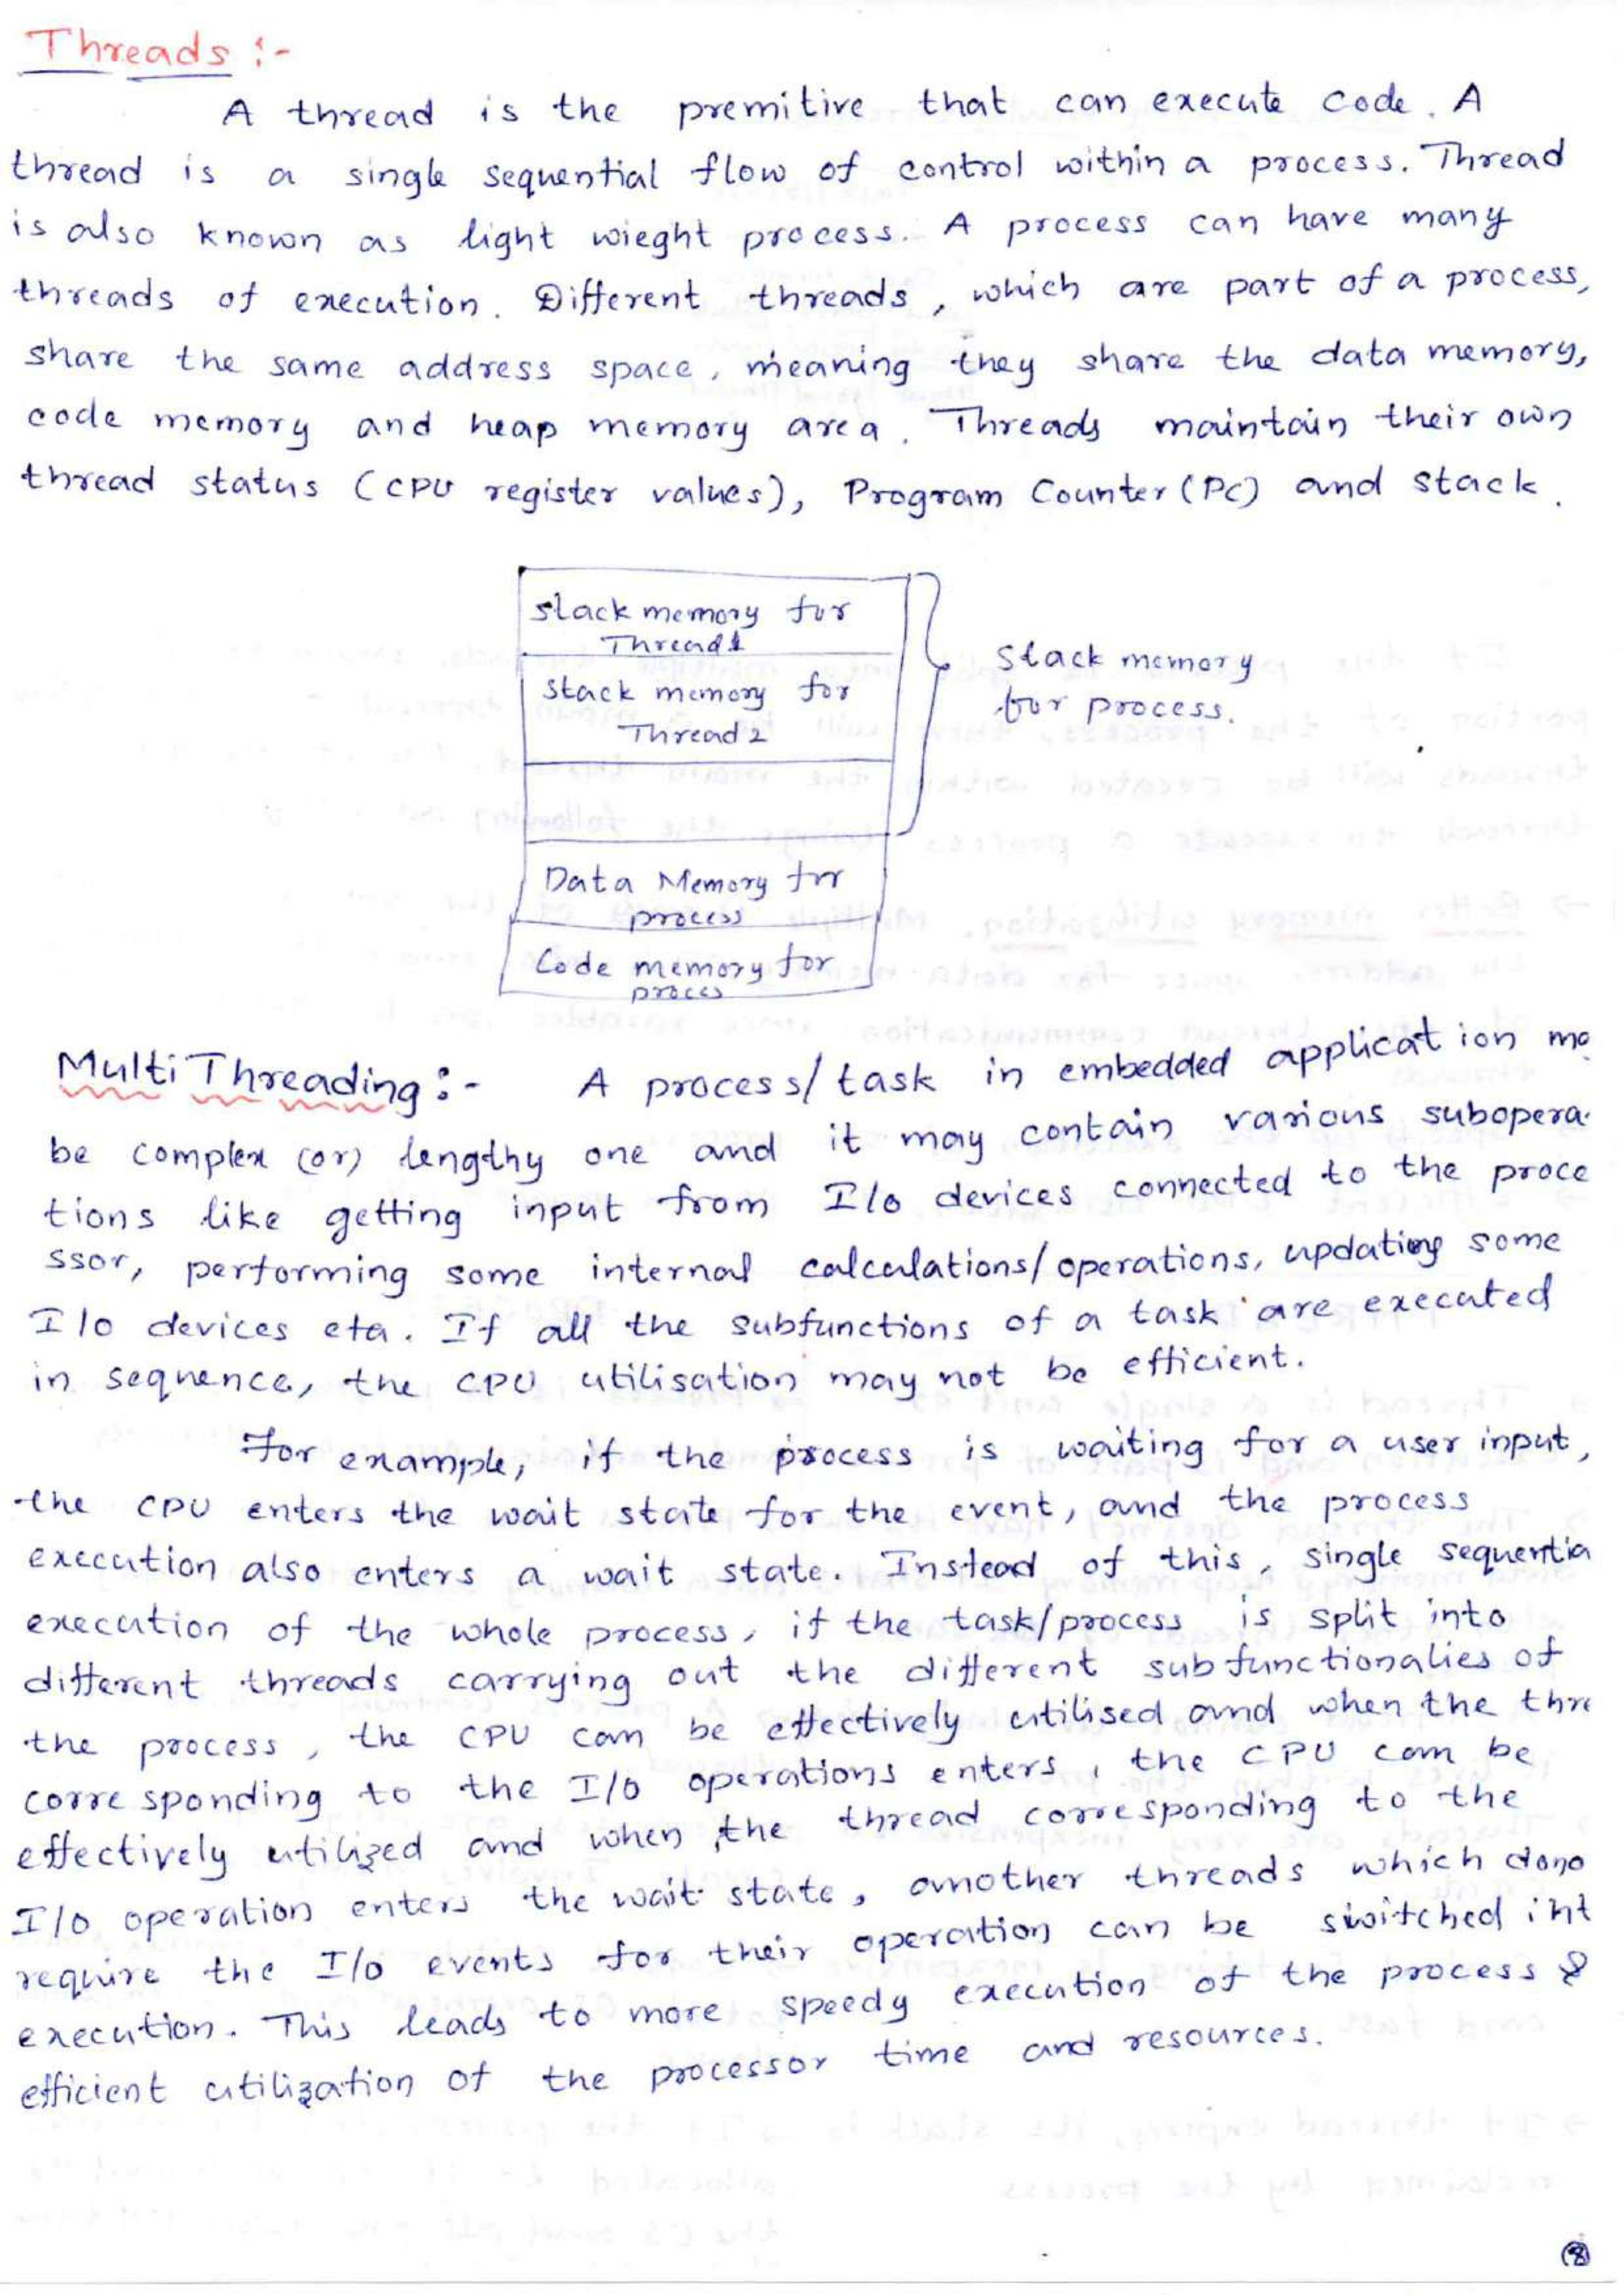 Threads :-
A thread is the premitive that can execute code. A
thread is a single sequential flow of control within a process. Thread
is also known as light wieght process. A process can have many
threads of execution. Different threads, which are part of a process,
share the same address space, meaning they share the data memory,
code memory and heap memory area. Threads maintain their own
thread status (CPU register values), Program Counter (PC) and stack.
stack memory for
Thread 1
stack memory for
Thread 2
Stack memory
for process.
Data Memory for
process
Code memory for
proces
Multi Threading :- A process/task in embedded application ma
be complex (or) lengthy one and it may contain various subopera-
tions like getting input from I/O devices connected to the proce
ssor, performing some internal calculations/operations, updating some
I/O devices eta. If all the subfunctions of a task are executed
in sequence, the CPU utilisation may not be efficient.
For example, if the process is waiting for a user input,
the CPU enters the wait state for the event, and the process
execution also enters a wait state. Instead of this, single sequentia
execution of the whole process, if the task/process is split into
different threads carrying out the different subfunctionalies of
the process, the CPU can be effectively utilised and when the thre
corresponding to the I/O operations enters, the CPU can be
effectively utilized and when the thread corresponding to the
I/O operation enters the wait state, another threads which dono
require the I/O events for their operation can be switched int
execution. This leads to more speedy execution of the process &
efficient utilization of the processor time and resources.
8